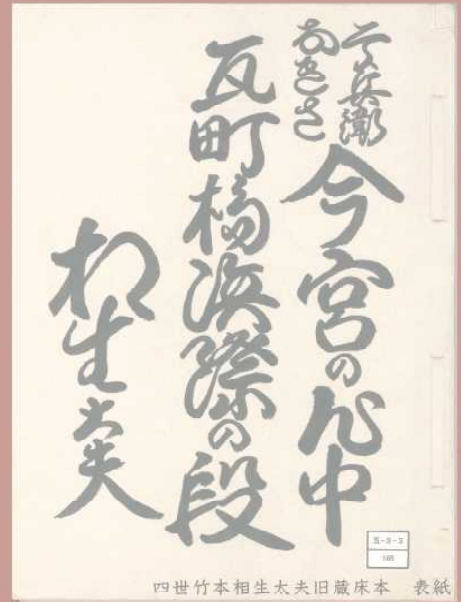 二郎兵衛
おきさ
今宮の心中
瓦町橋浜際の段
相生太夫
五-2-2
四世竹本相生太夫旧蔵床本　表紙